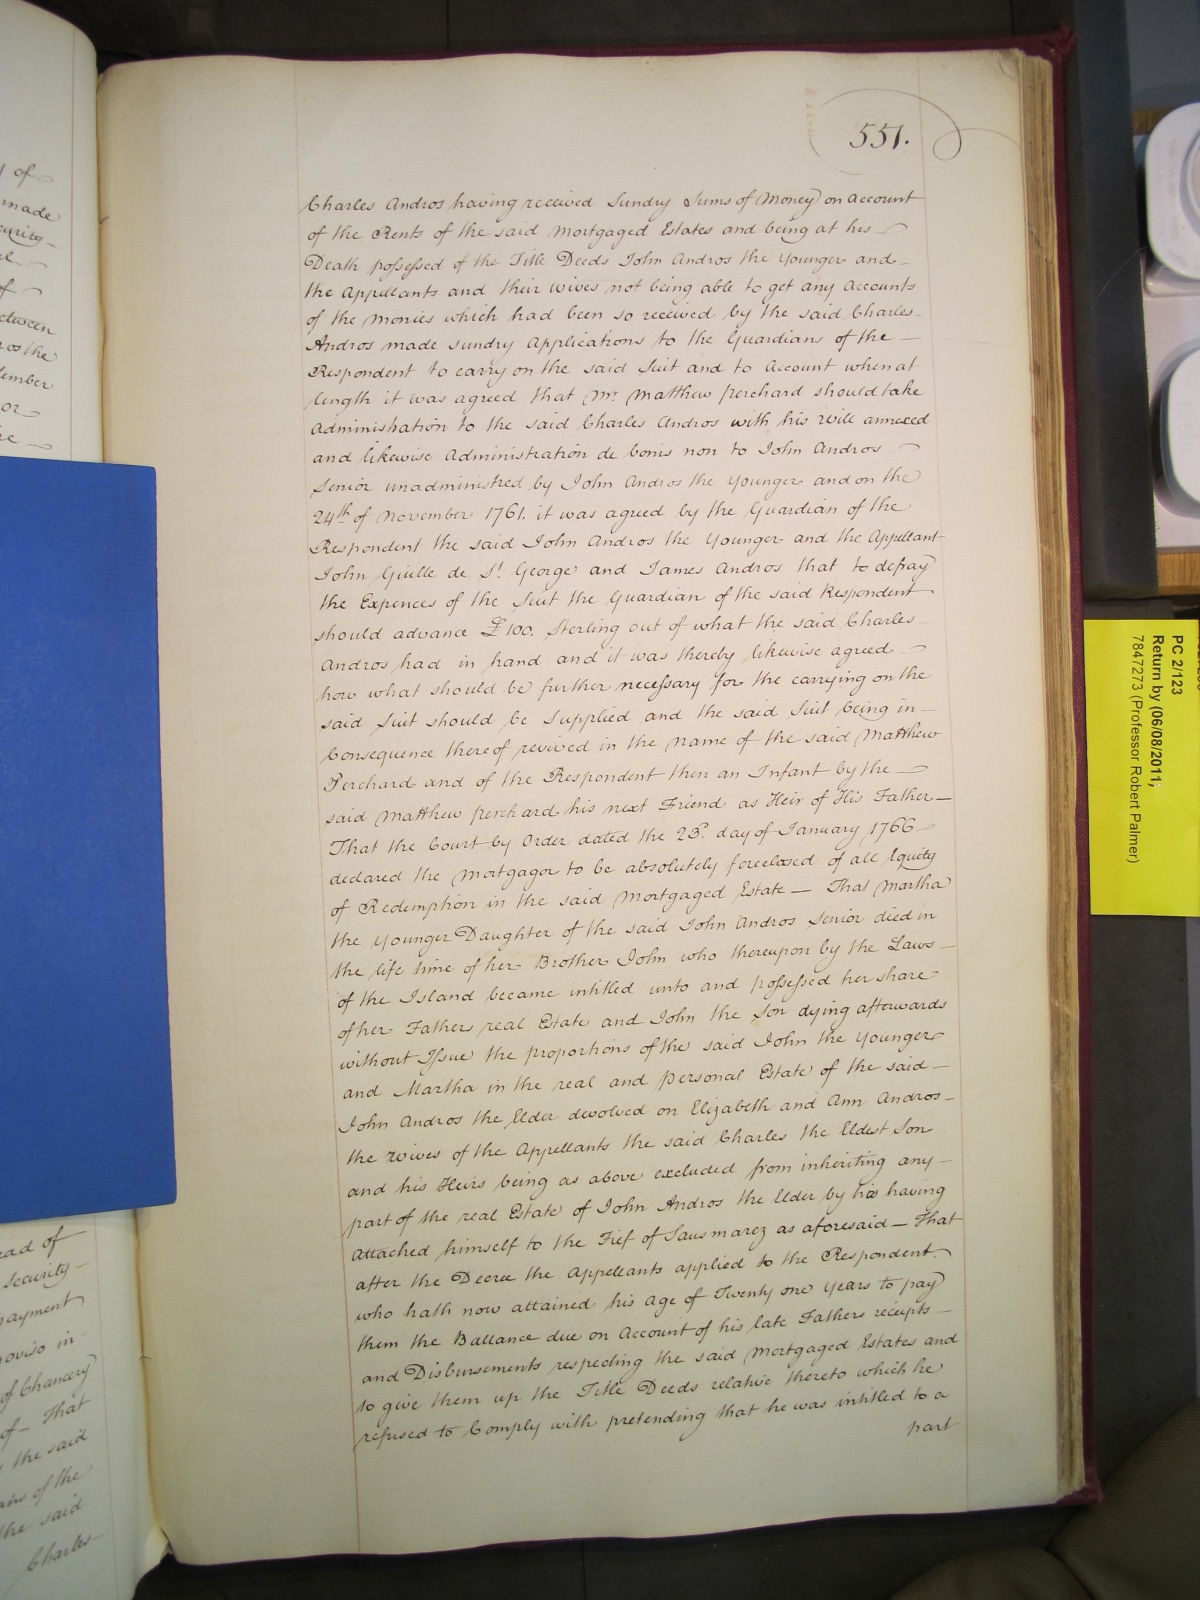 551.
Charles Andros having received Sundry Sums of Money on Account
of the Rents of the said Mortgaged Estates and being at his
Death possessed of the Title Deeds John Andros the Younger and
the Appellants and their wives not being able to get any Accounts
of the Monies which had been so received by the said Charles
Andros made sundry Applications to the Guardians of the
Respondent to carry on the said Suit and to Account when at
length it was agreed that Mr. Matthew Perchard should take
Administration to the said Charles Andros with his Will annexed
and likewise Administration de bonis non to John Andros
Senior unadministred by John Andros the Younger and on the
24th of November 1761. it was agreed by the Guardian of the
Respondent the said John Andros the Younger and the Appellant
John Guille de St. George and James Andros that to defray
the Expences of the Suit the Guardian of the said Respondent
should advance £100. Sterling out of what the said Charles
Andros had in hand and it was thereby likewise agreed
how what should be further necessary for the carrying on the
said Suit should be Supplied and the said Suit being in
Consequence thereof revived in the Name of the said Matthew
Perchard and of the Respondent then an Infant by the
said Matthew Perchard his next Friend as Heir of His Father—
That the Court by Order dated the 23d. day of January 1766
declared the Mortgagor to be absolutely foreclosed of all Equity
of Redemption in the said Mortgaged Estate — That Martha
the younger Daughter of the said John Andros Senior died in
the life time of her Brother John who thereupon by the Laws
of the Island became intitled unto and possessed her share
of her Fathers real Estate and John the Son dying afterwards
without Issue the proportions of the said John the Younger
and Martha in the real and personal Estate of the said
John Andros the Elder devolved on Elizabeth and Ann Andros
the Wives of the Appellants the said Charles the Eldest Son
and his Heirs being as above excluded from inheriting any
part of the real Estate of John Andros the Elder by his having
attached himself to the Fief of Sausmarez as aforesaid — That
after the Decree the Appellants applied to the Respondent
who hath now attained his Age of Twenty one years to pay
them the Ballance due on Account of his late Fathers receipts
and Disbursements respecting the said Mortgaged Estates and
to give them up the Title Deeds relative thereto which he
refused to Comply with pretending that he was intitled to a
part
of
made
of
or
ead of
Security
payment
oviso in
of Chancery
of — That
the said
of the
the said
Charles
PC 2/123
Return by (06/08/2011;
7847273 (Professor Robert Palmer)